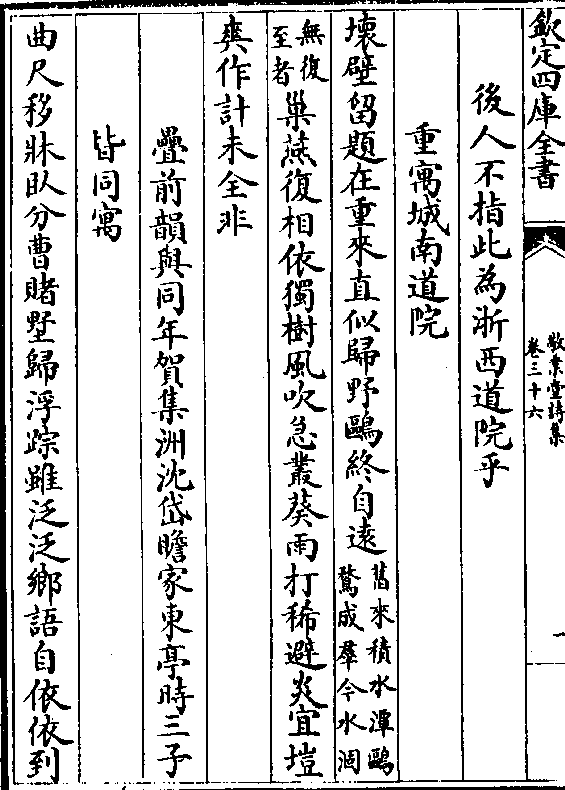 欽定四庫全書
敬業堂詩集
卷三十六
一
後人不指此為浙西道院乎
重寓城南道院
壞壁留題在重來直似歸野鷗終自逺舊來積水潭鷗
鶩成羣今水涸
無復
至者巢燕復相依獨樹風吹急叢葵雨打稀避炎宜塏
爽作計未全非
疊前韻與同年賀集洲沈岱瞻家東亭時三子
皆同寓
曲尺移牀臥分曹賭墅歸浮踪雖泛泛鄉語自依依到